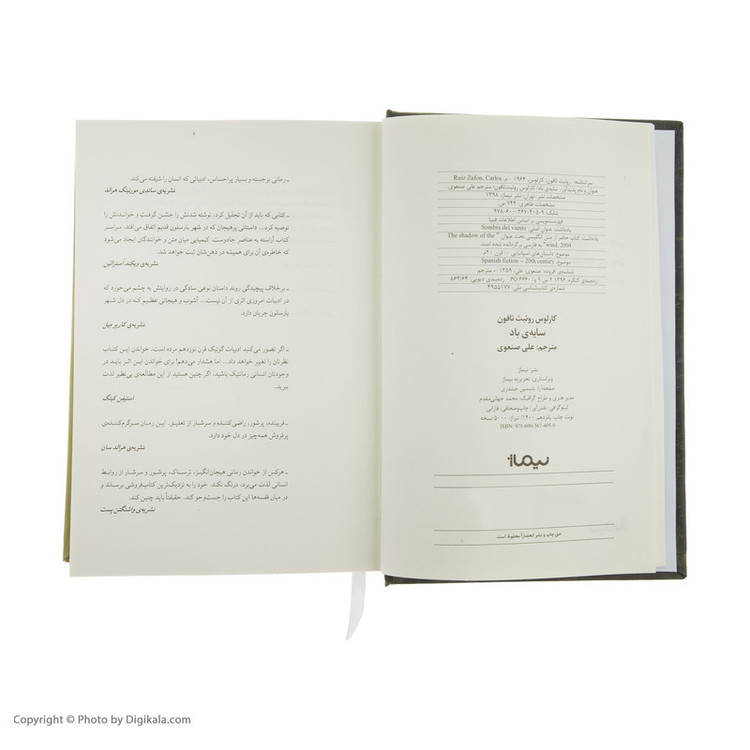 سرشناسه: روئیث ثافون، کارلوس، ۱۹۶۴ - م. Ruiz Zafon, Carlos
عنوان و نام پدیدآور: سایه‌ی باد/ کارلوس روئیث‌ثافون؛ مترجم علی صنعوی
مشخصات نشر: تهران: نشر نیماژ، ۱۳۹۸
مشخصات ظاهری: ۷۴۴ ص.
شابک: ۹-۴۰۵-۳۶۷-۶۰۰-۹۷۸
فهرست‌نویسی بر اساس اطلاعات فیپا
یادداشت: عنوان اصلی: Sombra del viento
یادداشت: کتاب حاضر از متن انگلیسی تحت عنوان "The shadow of the
wind, 2004" به فارسی برگردانده شده است.
موضوع: داستان‌های اسپانیایی -- قرن ۲۰م.
Spanish fiction – 20th century :موضوع
شناسه‌ی افزوده: صنعوی، علی، ۱۳۵۹-، مترجم
رده‌بندی کنگره: ۱۳۹۶ ۲ س ۹ و/ PQ ۶۶۶۰ رده‌بندی دیویی: ۸۶۳/۶۴
شماره‌ی کتاب‌شناسی ملی: ۴۹۵۵۱۷۷
کارلوس روئیث ثافون
سایه‌ی باد
مترجم: علی صنعوی
نشر: نیماژ
ویراستاری: تحریریه نیماژ
صفحه‌آرا: یاسمین حشدری
مدیر هنری و طراح گرافیک: محمد جهانی‌مقدم
لیتوگرافی: نقش‌آور، چاپ‌وصحافی: فارابی
نوبت چاپ: پانزدهم ۱۴۰۰/ تیراژ: ۵۰۰۰ نسخه
ISBN: 978-600-367-405-9
نیماژ
حق چاپ و نشر انحصاراً محفوظ است
ـ رمانی برجسته و بسیار پراحساس، ادبیاتی که انسان را شیفته می‌کند.
نشریه‌ی ساندی مورنینگ هرالد
ـ کتابی که باید از آن تجلیل کرد. نوشته شدنش را جشن گرفت و خواندنش را
توصیه کرد... داستانی پرهیجان که در شهر بارسلون قدیم اتفاق می‌افتد. سراسر
کتاب آراسته به عناصر جادوست. کیمیایی میان متن و خوانندگان ایجاد می‌شود
که خاطره‌ی آن برای همیشه در ذهن‌شان ثبت خواهد شد.
نشریه‌ی ویکند استرالین
ـ برخلاف پیچیدگی روند داستان نوعی سادگی در روایتش به چشم می‌خورد که
در ادبیات امروزی اثری از آن نیست... آشوب و هیجانی عظیم که در دل شهر
بارسلون جریان دارد.
نشریه‌ی کاریر میل
ـ اگر تصور می‌کنید ادبیات گوتیک قرن نوزدهم مرده است، خواندن این کتاب
نظرتان را تغییر خواهد داد... اما هشدار می‌دهم! برای خواندن این اثر باید در
وجودتان انسانی رمانتیک باشید. اگر چنین هستید از این مطالعه‌ی بی‌نظیر لذت
ببرید.
استیفن کینگ
ـ فریبنده، پرشور، راضی‌کننده و سرشار از تعلیق. این رمان سرگرم‌کننده‌ی
پرفروش همه‌چیز در دل خود دارد.
نشریه‌ی هرالد سان
ـ هرکس از خواندن رمانی هیجان‌انگیز، ترسناک، پرشور و سرشار از روابط
انسانی لذت می‌برد، درنگ نکند. خود را به نزدیک‌ترین کتاب‌فروشی برساند و
در میان قفسه‌ها این کتاب را جست‌وجو کند. حقیقتاً باید چنین کند.
نشریه‌ی واشنگتن پست
Copyright © Photo by Digikala.com